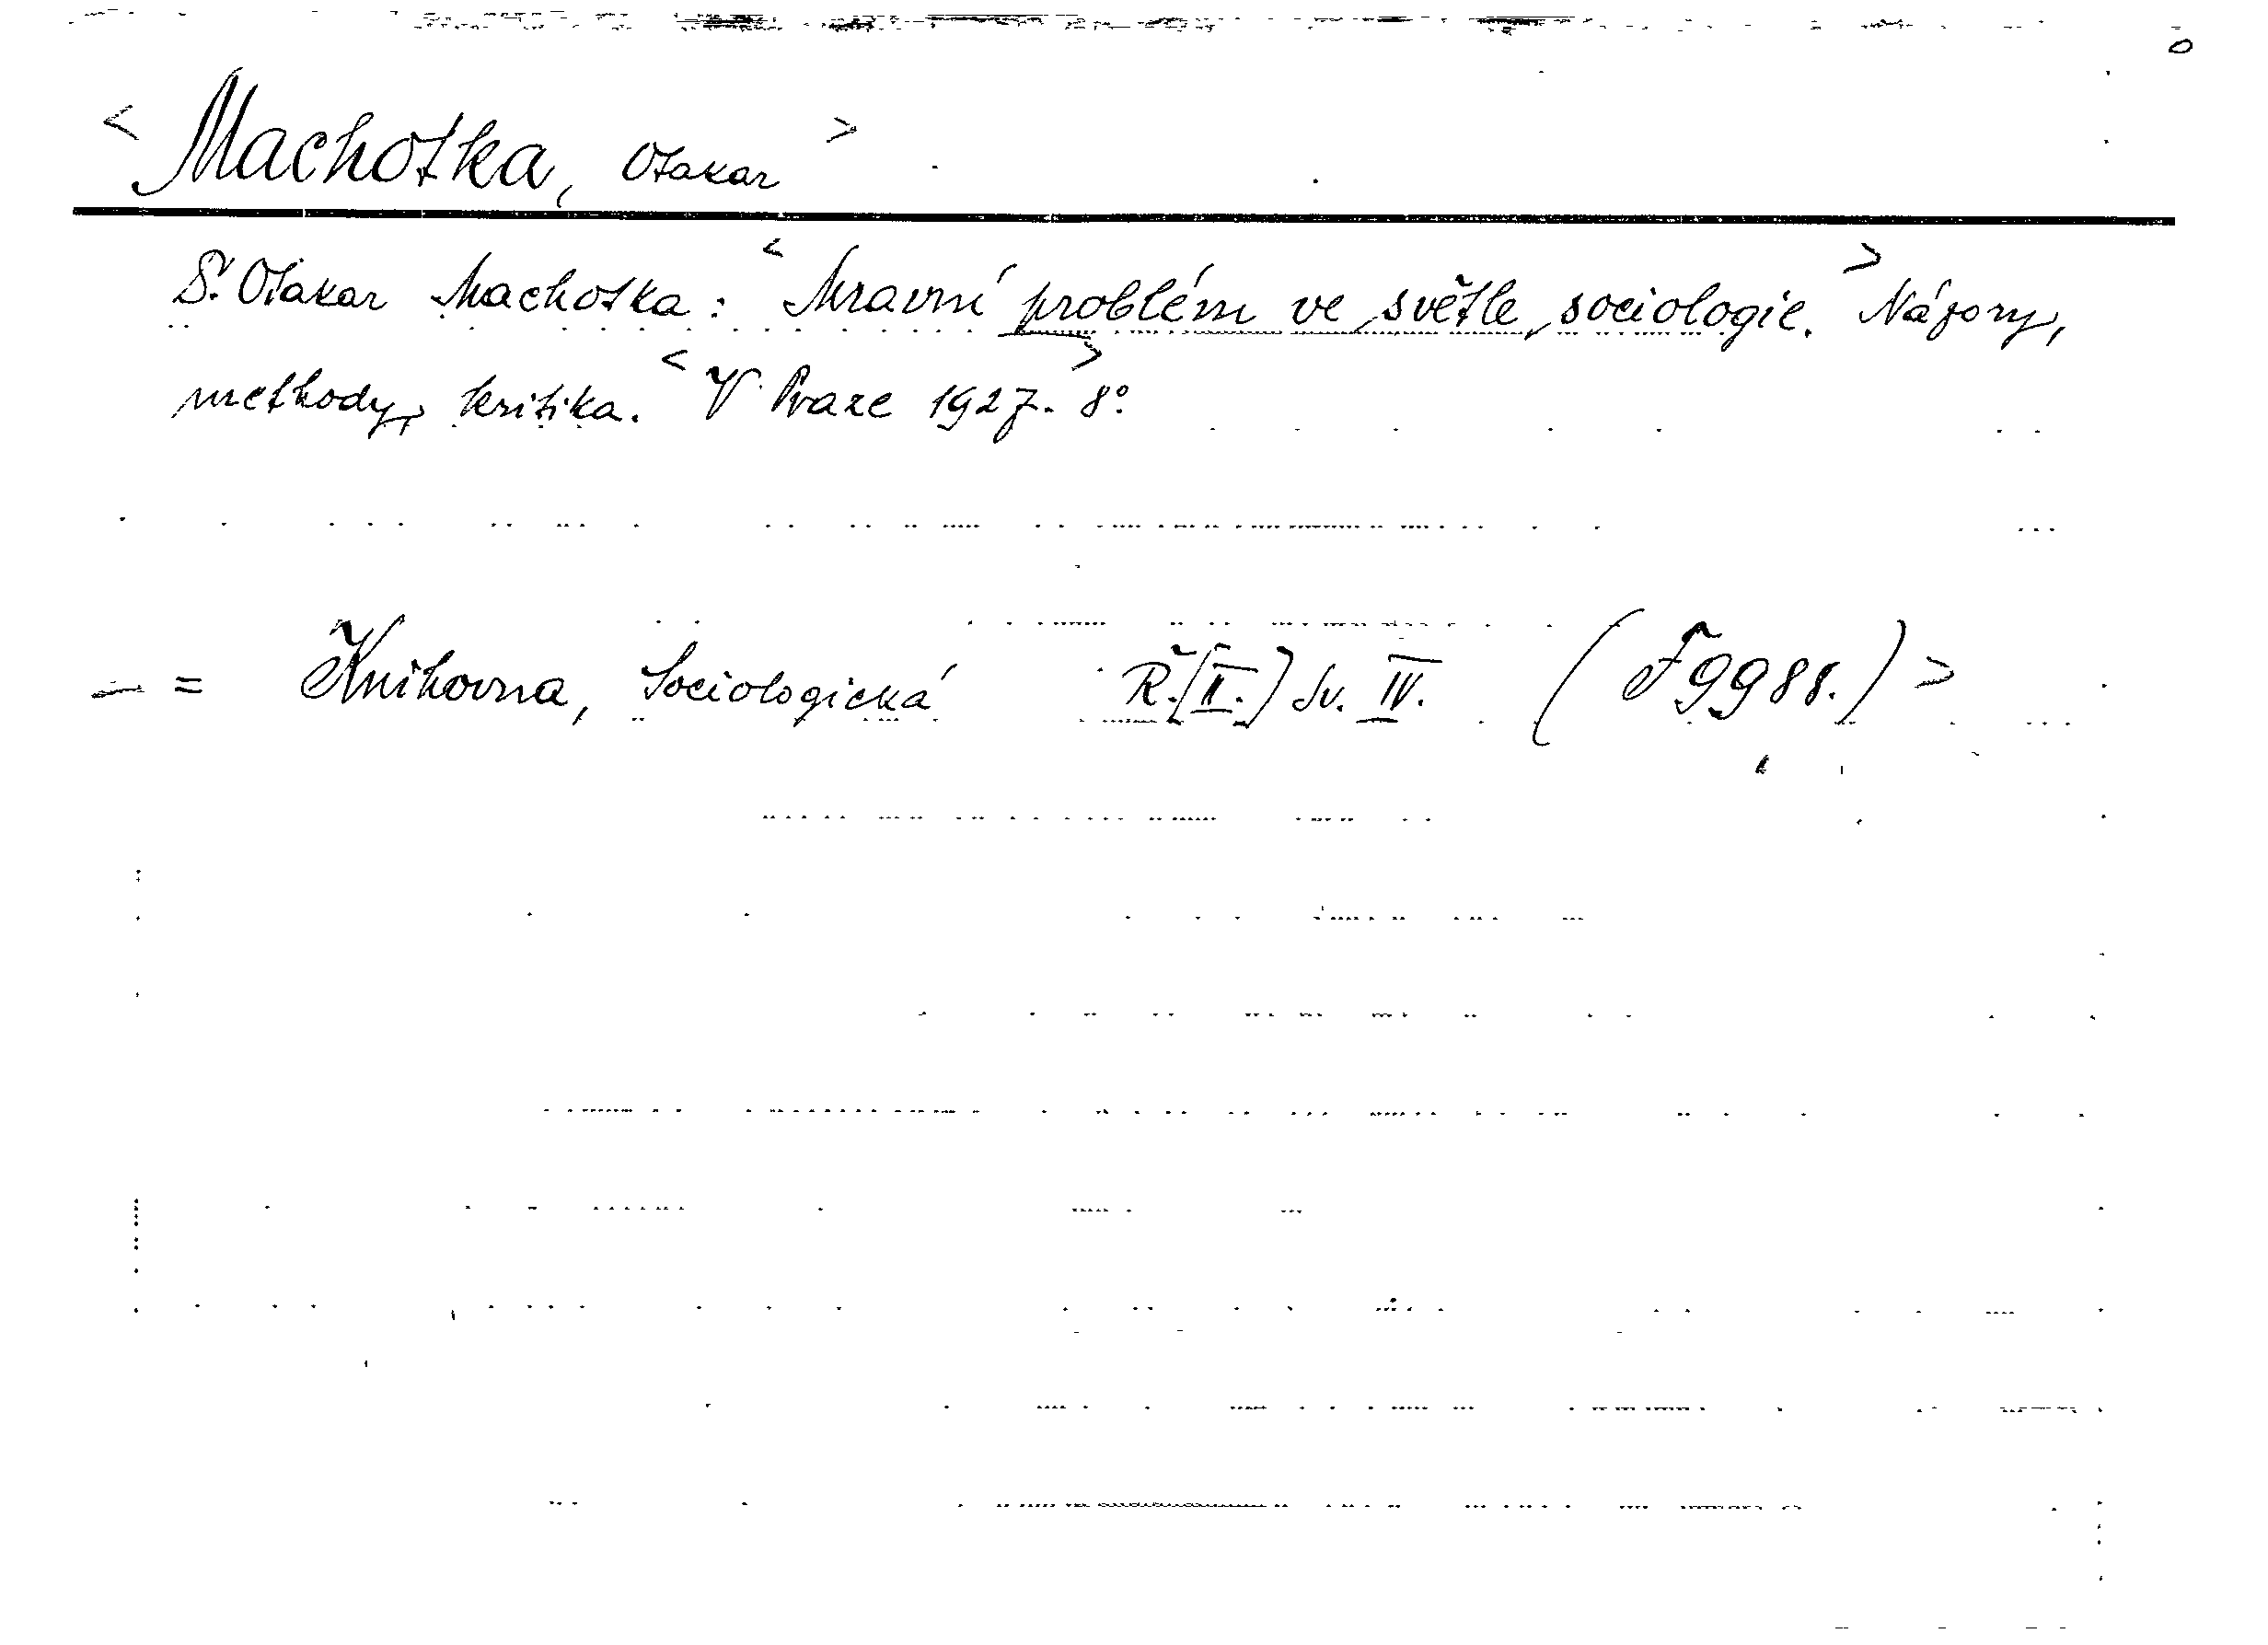 < Machotka, Otakar >
D.r Otakar Machotka: < Mravní problém ve světle sociologie. > Názory,
methody, kritika. < V Praze 1927. > 8°.
— = Knihovna, Sociologická Ř. [II.] Sv. IV. (F 9988.) >